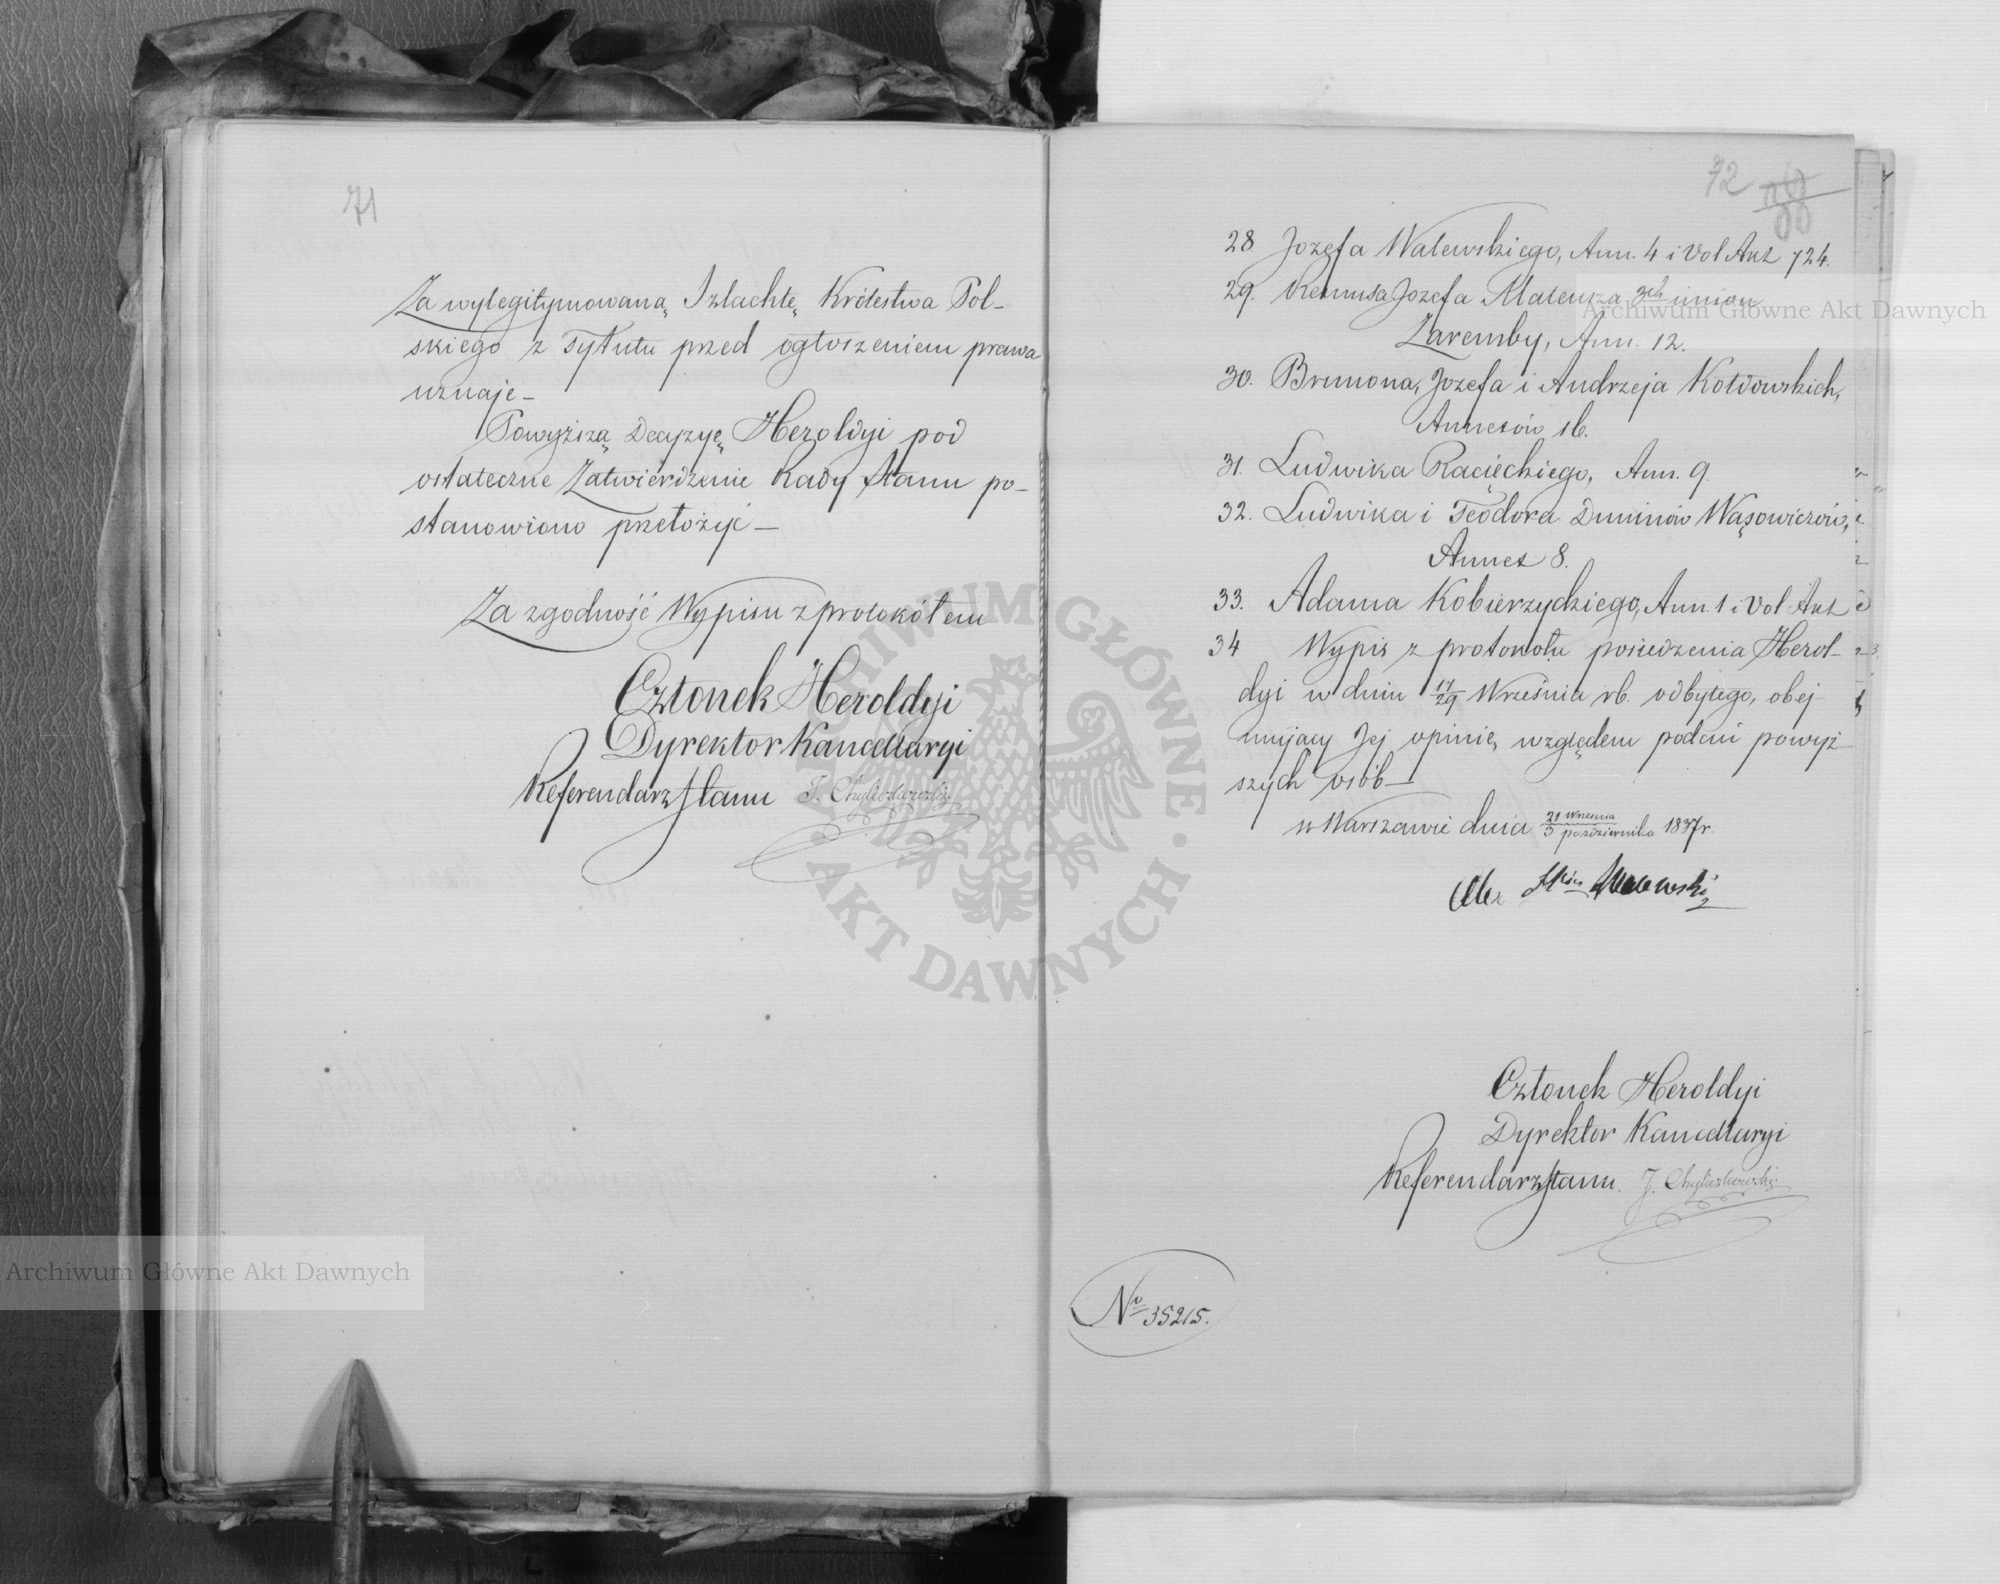 71
Za wylegitymowaną Szlachtę Królestwa Pol-
skiego z Tytułu przed ogłoszeniem prawa
uznaje—
Powyższą Decyzyę Heroldyi pod
ostateczne Zatwierdzenie Rady Stanu po-
stanowiono przełożyć—
Za zgodność Wypisu z protokółem
Członek Heroldyi
Dyrektor Kancellaryi
Referendarz Stanu J. Chyliczkowski
72
28 Jozefa Walewskiego, Ann. 4 i Vol Ant 724.
29. Remusa Jozefa Mateusza 3ch imion
Zaremby, Ann. 12.
30. Brunona, Jozefa i Andrzeja Kotdowskich,
Annexów 16.
31. Ludwika Racięckiego, Ann. 9.
32. Ludwika i Teodora Duninów Wąsowiczów,
Annex 8.
33. Adama Kobierzyckiego, Ann 1 i Vol Ant
34 Wypis z protokołu posiedzenia Herol-
dyi w dniu 17/29 Września rb. odbytego, obej-
mujący Jej opinię względem podań powyż-
szych osób—
w Warszawie dnia 21 Września/3 października 1837 r.
Członek Heroldyi
Dyrektor Kancellaryi
Referendarz Stanu. J. Chyliczkowski
No 35215.
Archiwum Główne Akt Dawnych
Archiwum Główne Akt Dawnych
ARCHIWUM GŁÓWNE · AKT DAWNYCH ·